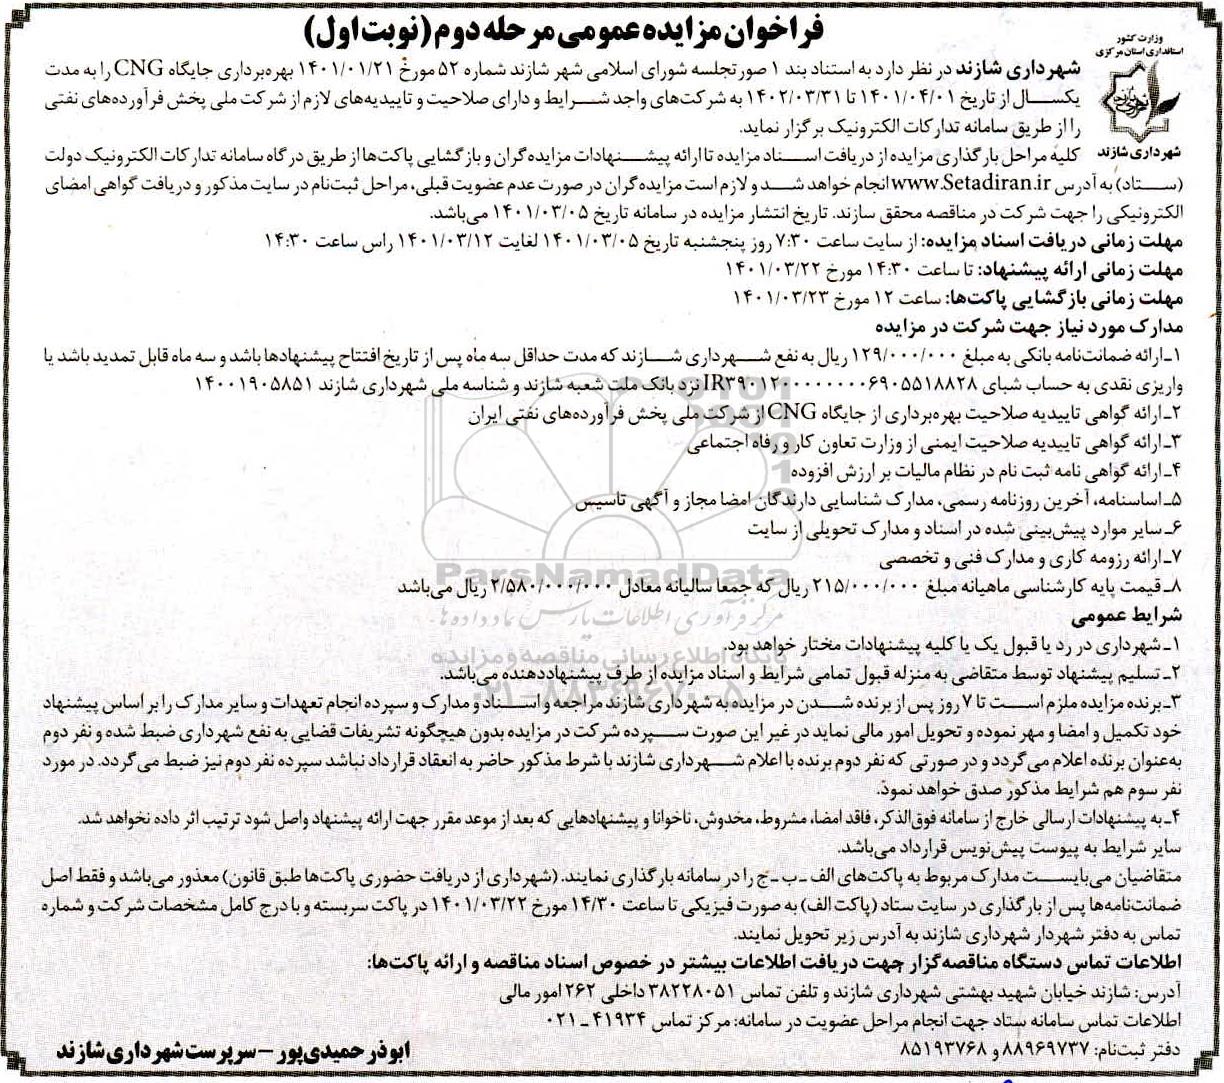 فراخوان مزایده عمومی مرحله دوم (نوبت اول)
وزارت کشور
استانداری استان مرکزی
شهرداری شازند
شهرداری شازند در نظر دارد به استناد بند ۱ صورتجلسه شورای اسلامی شهر شازند شماره ۵۲ مورخ ۱۴۰۱/۰۱/۲۱ بهره‌برداری جایگاه CNG را به مدت
یکسال از تاریخ ۱۴۰۱/۰۴/۰۱ تا ۱۴۰۲/۰۳/۳۱ به شرکت‌های واجد شرایط و دارای صلاحیت و تاییدیه‌های لازم از شرکت ملی پخش فرآورده‌های نفتی
را از طریق سامانه تدارکات الکترونیک برگزار نماید.
کلیه مراحل بارگذاری مزایده از دریافت اسناد مزایده تا ارائه پیشنهادات مزایده‌گران و بازگشایی پاکت‌ها از طریق درگاه سامانه تدارکات الکترونیک دولت
(ستاد) به آدرس www.Setadiran.ir انجام خواهد شد و لازم است مزایده‌گران در صورت عدم عضویت قبلی، مراحل ثبت‌نام در سایت مذکور و دریافت گواهی امضای
الکترونیکی را جهت شرکت در مناقصه محقق سازند. تاریخ انتشار مزایده در سامانه تاریخ ۱۴۰۱/۰۳/۰۵ می‌باشد.
مهلت زمانی دریافت اسناد مزایده: از سایت ساعت ۷:۳۰ روز پنجشنبه تاریخ ۱۴۰۱/۰۳/۰۵ لغایت ۱۴۰۱/۰۳/۱۲ راس ساعت ۱۴:۳۰
مهلت زمانی ارائه پیشنهاد: تا ساعت ۱۴:۳۰ مورخ ۱۴۰۱/۰۳/۲۲
مهلت زمانی بازگشایی پاکت‌ها: ساعت ۱۲ مورخ ۱۴۰۱/۰۳/۲۳
مدارک مورد نیاز جهت شرکت در مزایده
۱ـ ارائه ضمانت‌نامه بانکی به مبلغ ۱۲۹/۰۰۰/۰۰۰ ریال به نفع شهرداری شازند که مدت حداقل سه ماه پس از تاریخ افتتاح پیشنهادها باشد و سه ماه قابل تمدید باشد یا
واریزی نقدی به حساب شبای IR۳۹۰۱۲۰۰۰۰۰۰۰۰۰۶۹۰۵۵۱۸۸۲۸ نزد بانک ملت شعبه شازند و شناسه ملی شهرداری شازند ۱۴۰۰۱۹۰۵۸۵۱
۲ـ ارائه گواهی تاییدیه صلاحیت بهره‌برداری از جایگاه CNG از شرکت ملی پخش فرآورده‌های نفتی ایران
۳ـ ارائه گواهی تاییدیه صلاحیت ایمنی از وزارت تعاون کار و رفاه اجتماعی
۴ـ ارائه گواهی نامه ثبت نام در نظام مالیات بر ارزش افزوده
۵ـ اساسنامه، آخرین روزنامه رسمی، مدارک شناسایی دارندگان امضا مجاز و آگهی تاسیس
۶ـ سایر موارد پیش‌بینی شده در اسناد و مدارک تحویلی از سایت
۷ـ ارائه رزومه کاری و مدارک فنی و تخصصی
۸ـ قیمت پایه کارشناسی ماهیانه مبلغ ۲۱۵/۰۰۰/۰۰۰ ریال که جمعا سالیانه معادل ۲/۵۸۰/۰۰۰/۰۰۰ ریال می‌باشد
شرایط عمومی
۱ـ شهرداری در رد یا قبول یک یا کلیه پیشنهادات مختار خواهد بود.
۲ـ تسلیم پیشنهاد توسط متقاضی به منزله قبول تمامی شرایط و اسناد مزایده از طرف پیشنهاددهنده می‌باشد.
۳ـ برنده مزایده ملزم است تا ۷ روز پس از برنده شدن در مزایده به شهرداری شازند مراجعه و اسناد و مدارک و سپرده انجام تعهدات و سایر مدارک را بر اساس پیشنهاد
خود تکمیل و امضا و مهر نموده و تحویل امور مالی نماید در غیر این صورت سپرده شرکت در مزایده بدون هیچگونه تشریفات قضایی به نفع شهرداری ضبط شده و نفر دوم
به‌عنوان برنده اعلام می‌گردد و در صورتی که نفر دوم برنده با اعلام شهرداری شازند با شرط مذکور حاضر به انعقاد قرارداد نباشد سپرده نفر دوم نیز ضبط می‌گردد. در مورد
نفر سوم هم شرایط مذکور صدق خواهد نمود.
۴ـ به پیشنهادات ارسالی خارج از سامانه فوق‌الذکر، فاقد امضا، مشروط، مخدوش، ناخوانا و پیشنهادهایی که بعد از موعد مقرر جهت ارائه پیشنهاد واصل شود ترتیب اثر داده نخواهد شد.
سایر شرایط به پیوست پیش‌نویس قرارداد می‌باشد.
متقاضیان می‌بایست مدارک مربوط به پاکت‌های الف ـ ب ـ ج را در سامانه بارگذاری نمایند. (شهرداری از دریافت حضوری پاکت‌ها طبق قانون) معذور می‌باشد و فقط اصل
ضمانت‌نامه‌ها پس از بارگذاری در سایت ستاد (پاکت الف) به صورت فیزیکی تا ساعت ۱۴/۳۰ مورخ ۱۴۰۱/۰۳/۲۲ در پاکت سربسته و با درج کامل مشخصات شرکت و شماره
تماس به دفتر شهردار شهرداری شازند به آدرس زیر تحویل نمایند.
اطلاعات تماس دستگاه مناقصه‌گزار جهت دریافت اطلاعات بیشتر در خصوص اسناد مناقصه و ارائه پاکت‌ها:
آدرس: شازند خیابان شهید بهشتی شهرداری شازند و تلفن تماس ۳۸۲۲۸۰۵۱ داخلی ۲۶۲ امور مالی
اطلاعات تماس سامانه ستاد جهت انجام مراحل عضویت در سامانه: مرکز تماس ۴۱۹۳۴ ـ ۰۲۱
دفتر ثبت‌نام: ۸۸۹۶۹۷۳۷ و ۸۵۱۹۳۷۶۸
ابوذر حمیدی‌پور – سرپرست شهرداری شازند
ParsNamadData
مرکز فرآوری اطلاعات پارس نماد داده‌ها
پایگاه اطلاع رسانی مناقصه و مزایده
۰۲۱-۸۸۳۴۹۶۷۰-۵